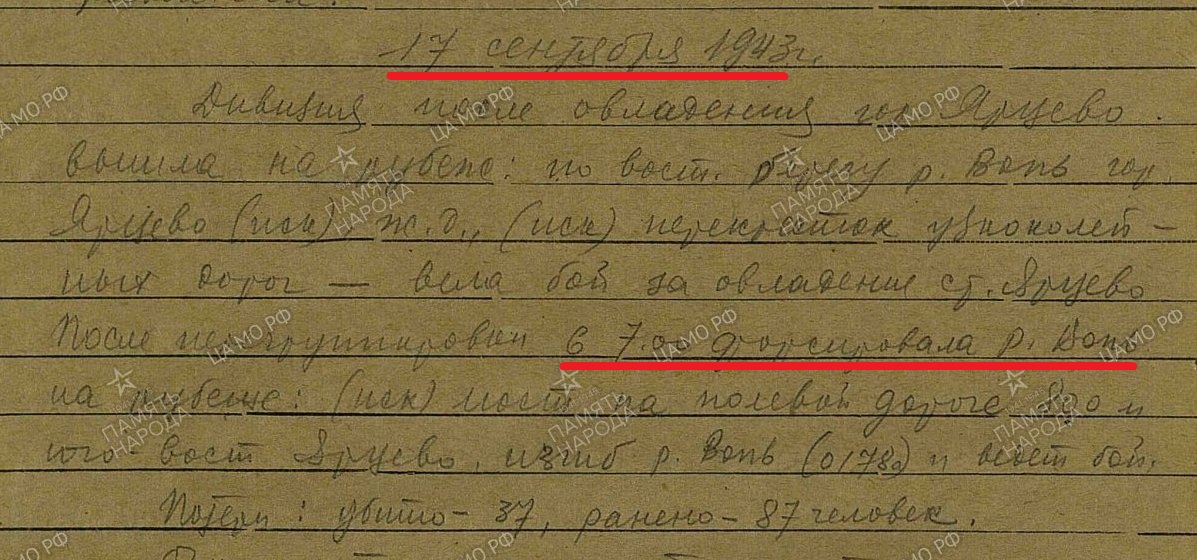 17 сентября 1943г.
Дивизия после овладения гор Ярцево.
вышла на рубеж: по вост. берегу р. Вопь гор.
Ярцево (иск) ж.д., (иск) перекресток узкоколей-
ных дорог — вела бой за овладение ст. Ярцево
После перегруппировки в 7.00 форсировала р. Вопь
на рубеже: (иск) мост на полевой дороге 800 м
юго-вост Ярцево, изгиб р. Вопь (0178а) и ведет бой.
Потери: убито - 37, ранено - 87 человек.
ЦАМО РФ
ПАМЯТЬ
НАРОДА